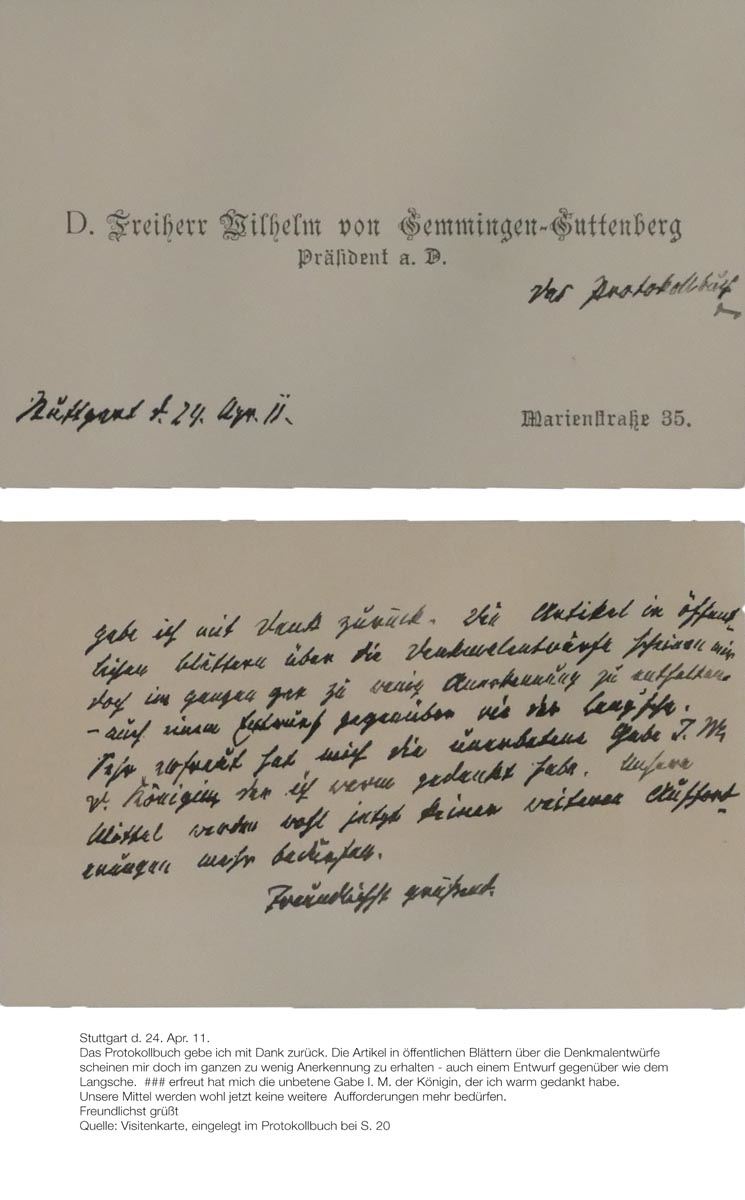 D. Freiherr Wilhelm von Gemmingen-Guttenberg
Präsident a. D.
Das Protokollbuch
Stuttgart d. 24. Apr. 11.
Marienstraße 35.
gebe ich mit Dank zurück. Die Artikel in öffent-
lichen Blättern über die Denkmalentwürfe scheinen mir
doch im ganzen gar zu wenig Anerkennung zu enthalten
- auch einem Entwurf gegenüber wie der Lang'sche.
Sehr erfreut hat mich die unerbetene Gabe I. M.
d. Königin, der ich warm gedankt habe. Unsere
Mittel werden wohl jetzt keiner weiteren Aufford-
erungen mehr bedürfen.
Freundlichst grüßend.
Stuttgart d. 24. Apr. 11.
Das Protokollbuch gebe ich mit Dank zurück. Die Artikel in öffentlichen Blättern über die Denkmalentwürfe
scheinen mir doch im ganzen zu wenig Anerkennung zu erhalten - auch einem Entwurf gegenüber wie dem
Langsche. ### erfreut hat mich die unbetene Gabe I. M. der Königin, der ich warm gedankt habe.
Unsere Mittel werden wohl jetzt keine weitere Aufforderungen mehr bedürfen.
Freundlichst grüßt
Quelle: Visitenkarte, eingelegt im Protokollbuch bei S. 20